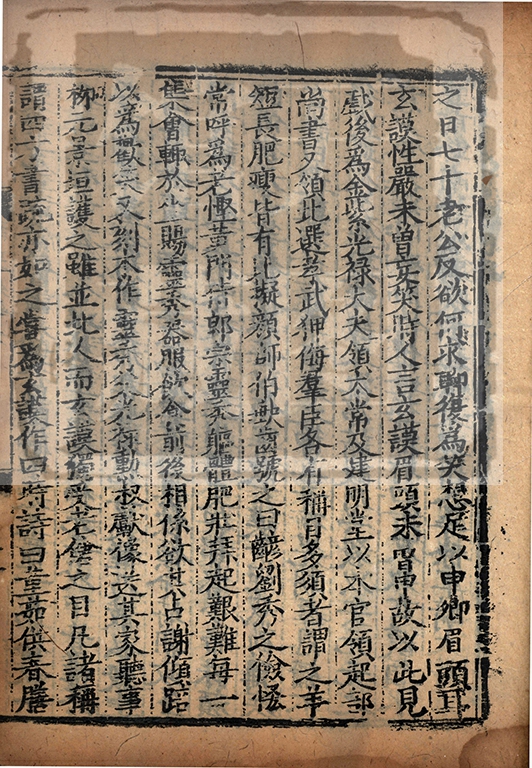 之日七十老公反欲何求聊復為笑想足以申卿眉頭耳
玄謨性嚴未曾妄笑時人言玄謨眉頭未曾申故以此見
戲後為金紫光祿大夫領太常及建明堂以本官領起部
尚書又領北選孝武狎侮羣臣各有稱目多須者謂之羊
短長肥瘦皆有比擬顏師伯𡙇齒號之曰齴劉秀之儉悋
常呼為老慳黃門侍郎宗靈秀軀體肥壯拜起艱難每一
集會輙於坐賜靈秀器服飲食前後相係欲其占謝傾踣
以為歡笑又刻木作靈秀父光祿勳叔獻像送其家聽事
柳元景垣護之雖並北人而玄謨獨受老傖之目凡諸稱
謂四方書疏亦如之嘗為玄謨作四時詩曰堇茹供春膳